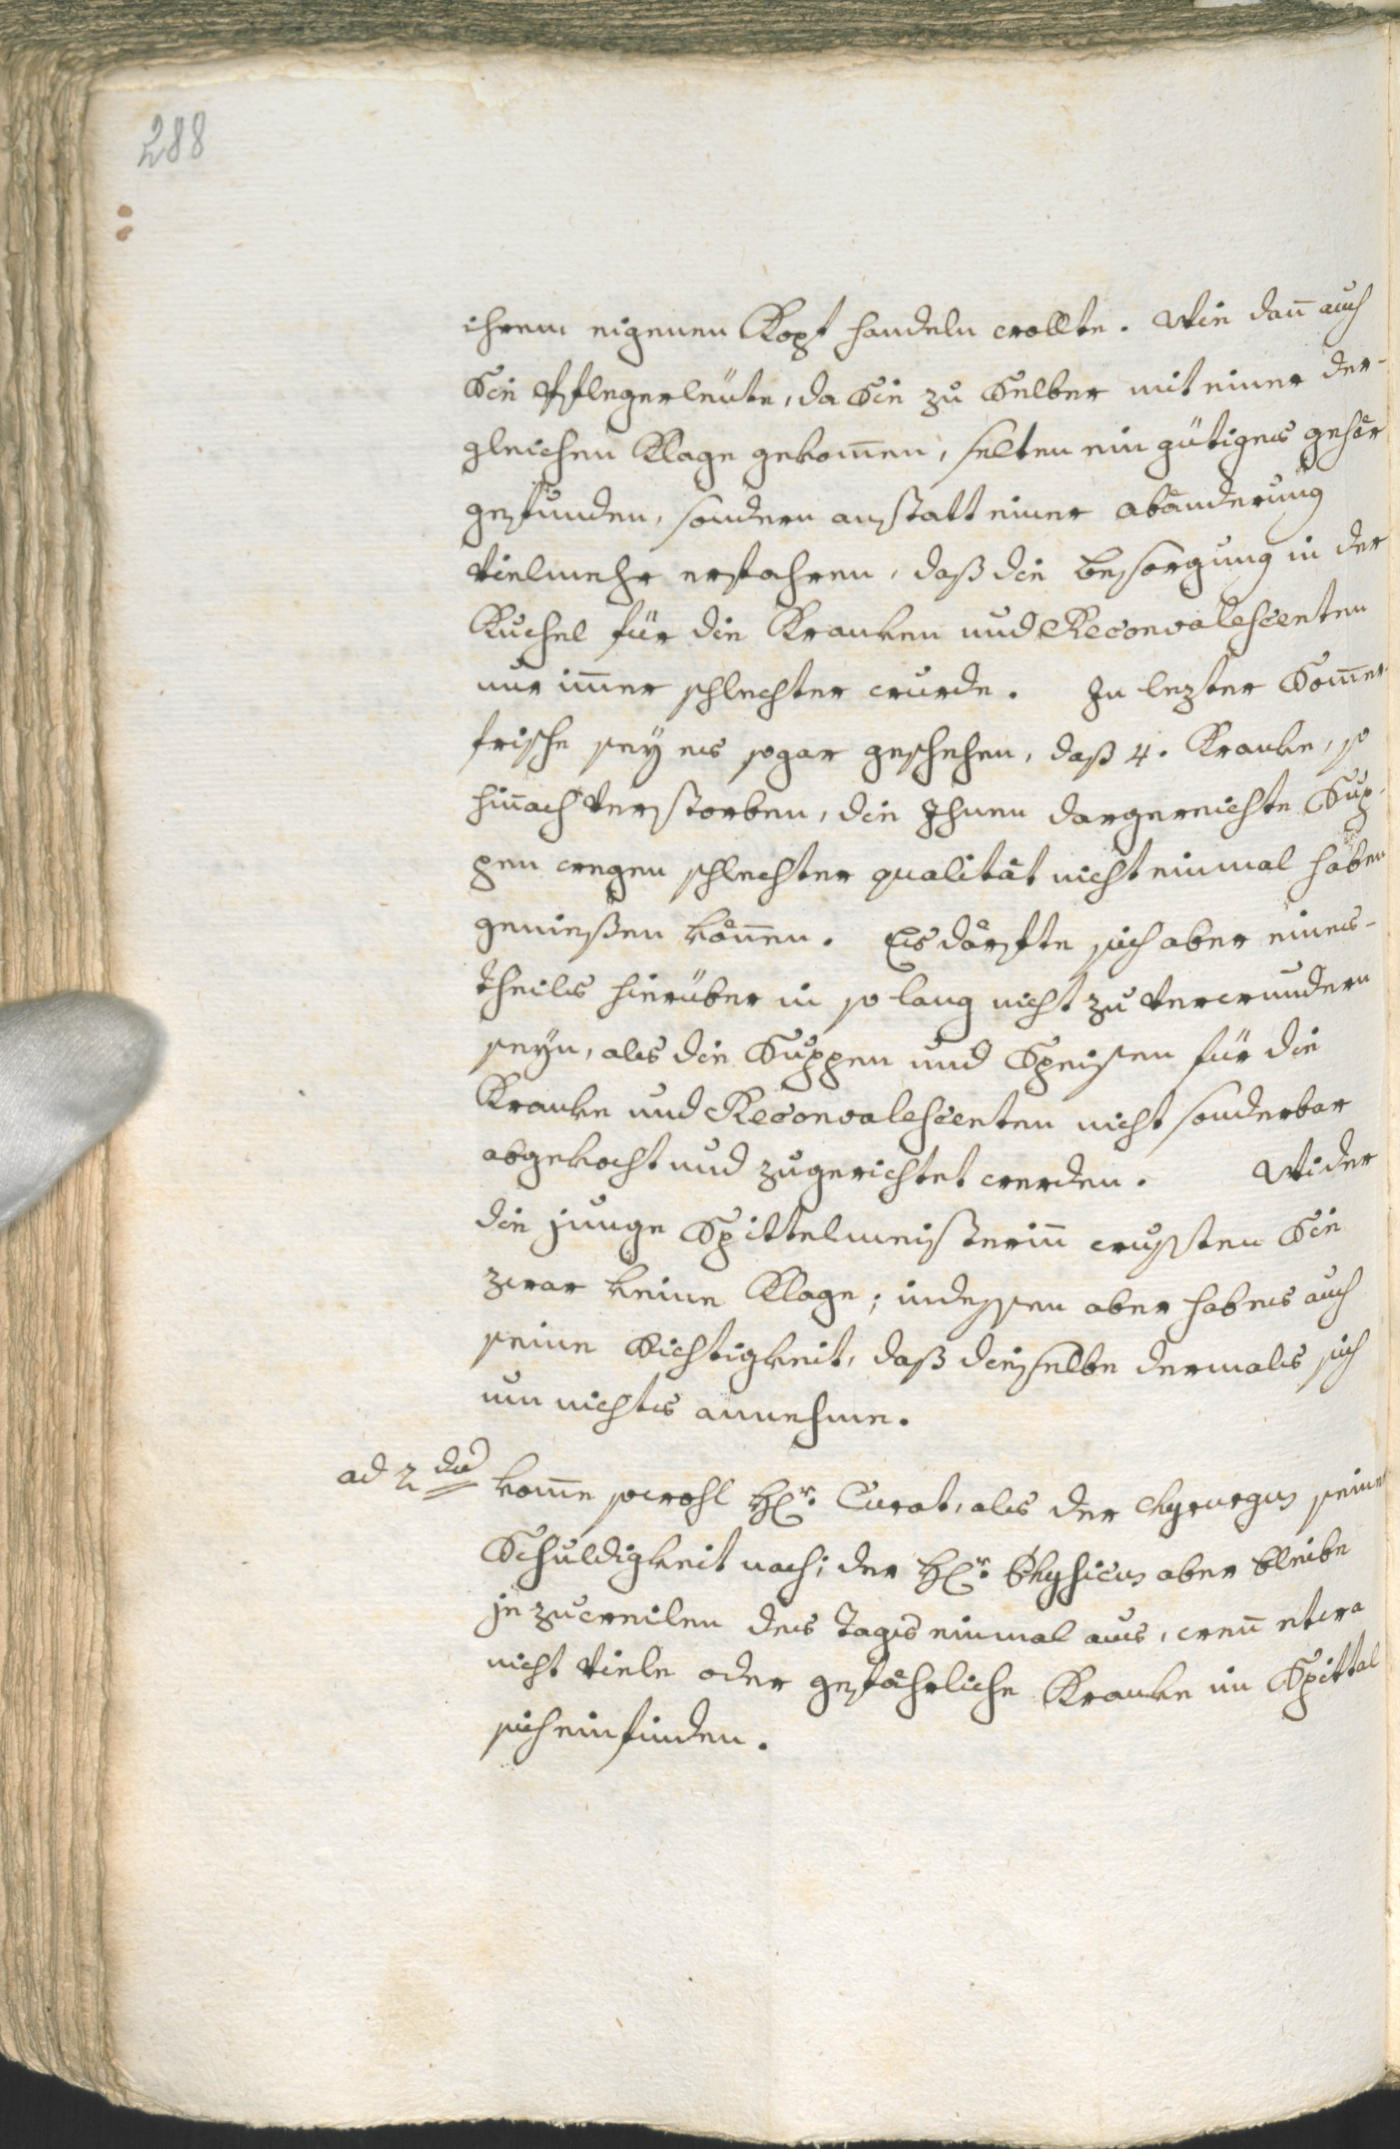 288
ihrem eigenen Kopf handeln wollte. Wie dañ auch
Sie Pflegerleüte, da Sie zu Selber mit einer der-
gleichen Klage gekom̄en, selten ein gütiges gehör
gefunden, sondern anstatt einer abänderung
vielmehr erfahren, daß die besorgung in der
Kuchel für die Kranken und Reconvalescenten
nur im̄er schlechter wurde. In lezter Som̄er
frische seÿ es sogar geschehen, daß 4. Kranke, so
hiñach verstorben, die Ihnen dargereichte Sup-
pen wegen schlechter qualität nicht einmal haben
genießen köñen. Es dörfte sich aber eines-
theils hierüber in so lang nicht zu verwundern
seÿn, als die Suppen und Speisen für die
Kranke und Reconvalescenten nicht sonderbar
abgekocht und zugerichtet werden. Wider
die junge Spittelmeisteriñ wusten Sie
zwar keine Klage; indessen aber habe es auch
seine Richtigkeit, daß dieselbe dermals sich
um nichts annehme.
ad 2dū kom̄e sowohl H̄r. Curat, als der chyrurgus seiner
Schuldigkeit nach; der H̄r. Physicus aber bleibe
je zuweilen des Tags einmal aus, weñ etwa
nicht viele oder gefährliche Kranke im Spittal
sich einfinden.